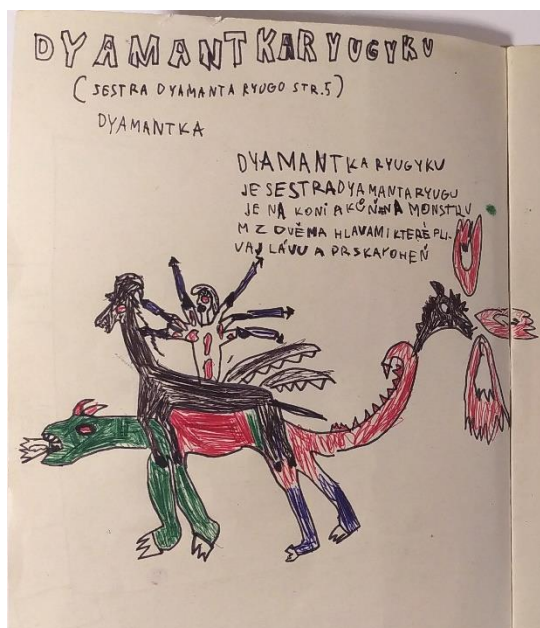 DYAMANTKARYUGYKU
(SESTRA DYAMANTA RYUGO STR.5)
DYAMANTKA
DYAMANTKA RYUGYKU
JE SESTRADYAMANTARYUGU
JE NA KONI A KŮŇ NA MONSTRU
M Z DVĚMA HLAVAMI KTERÉ PLI-
VAJ LÁVU A PRSKAJ OHEŇ